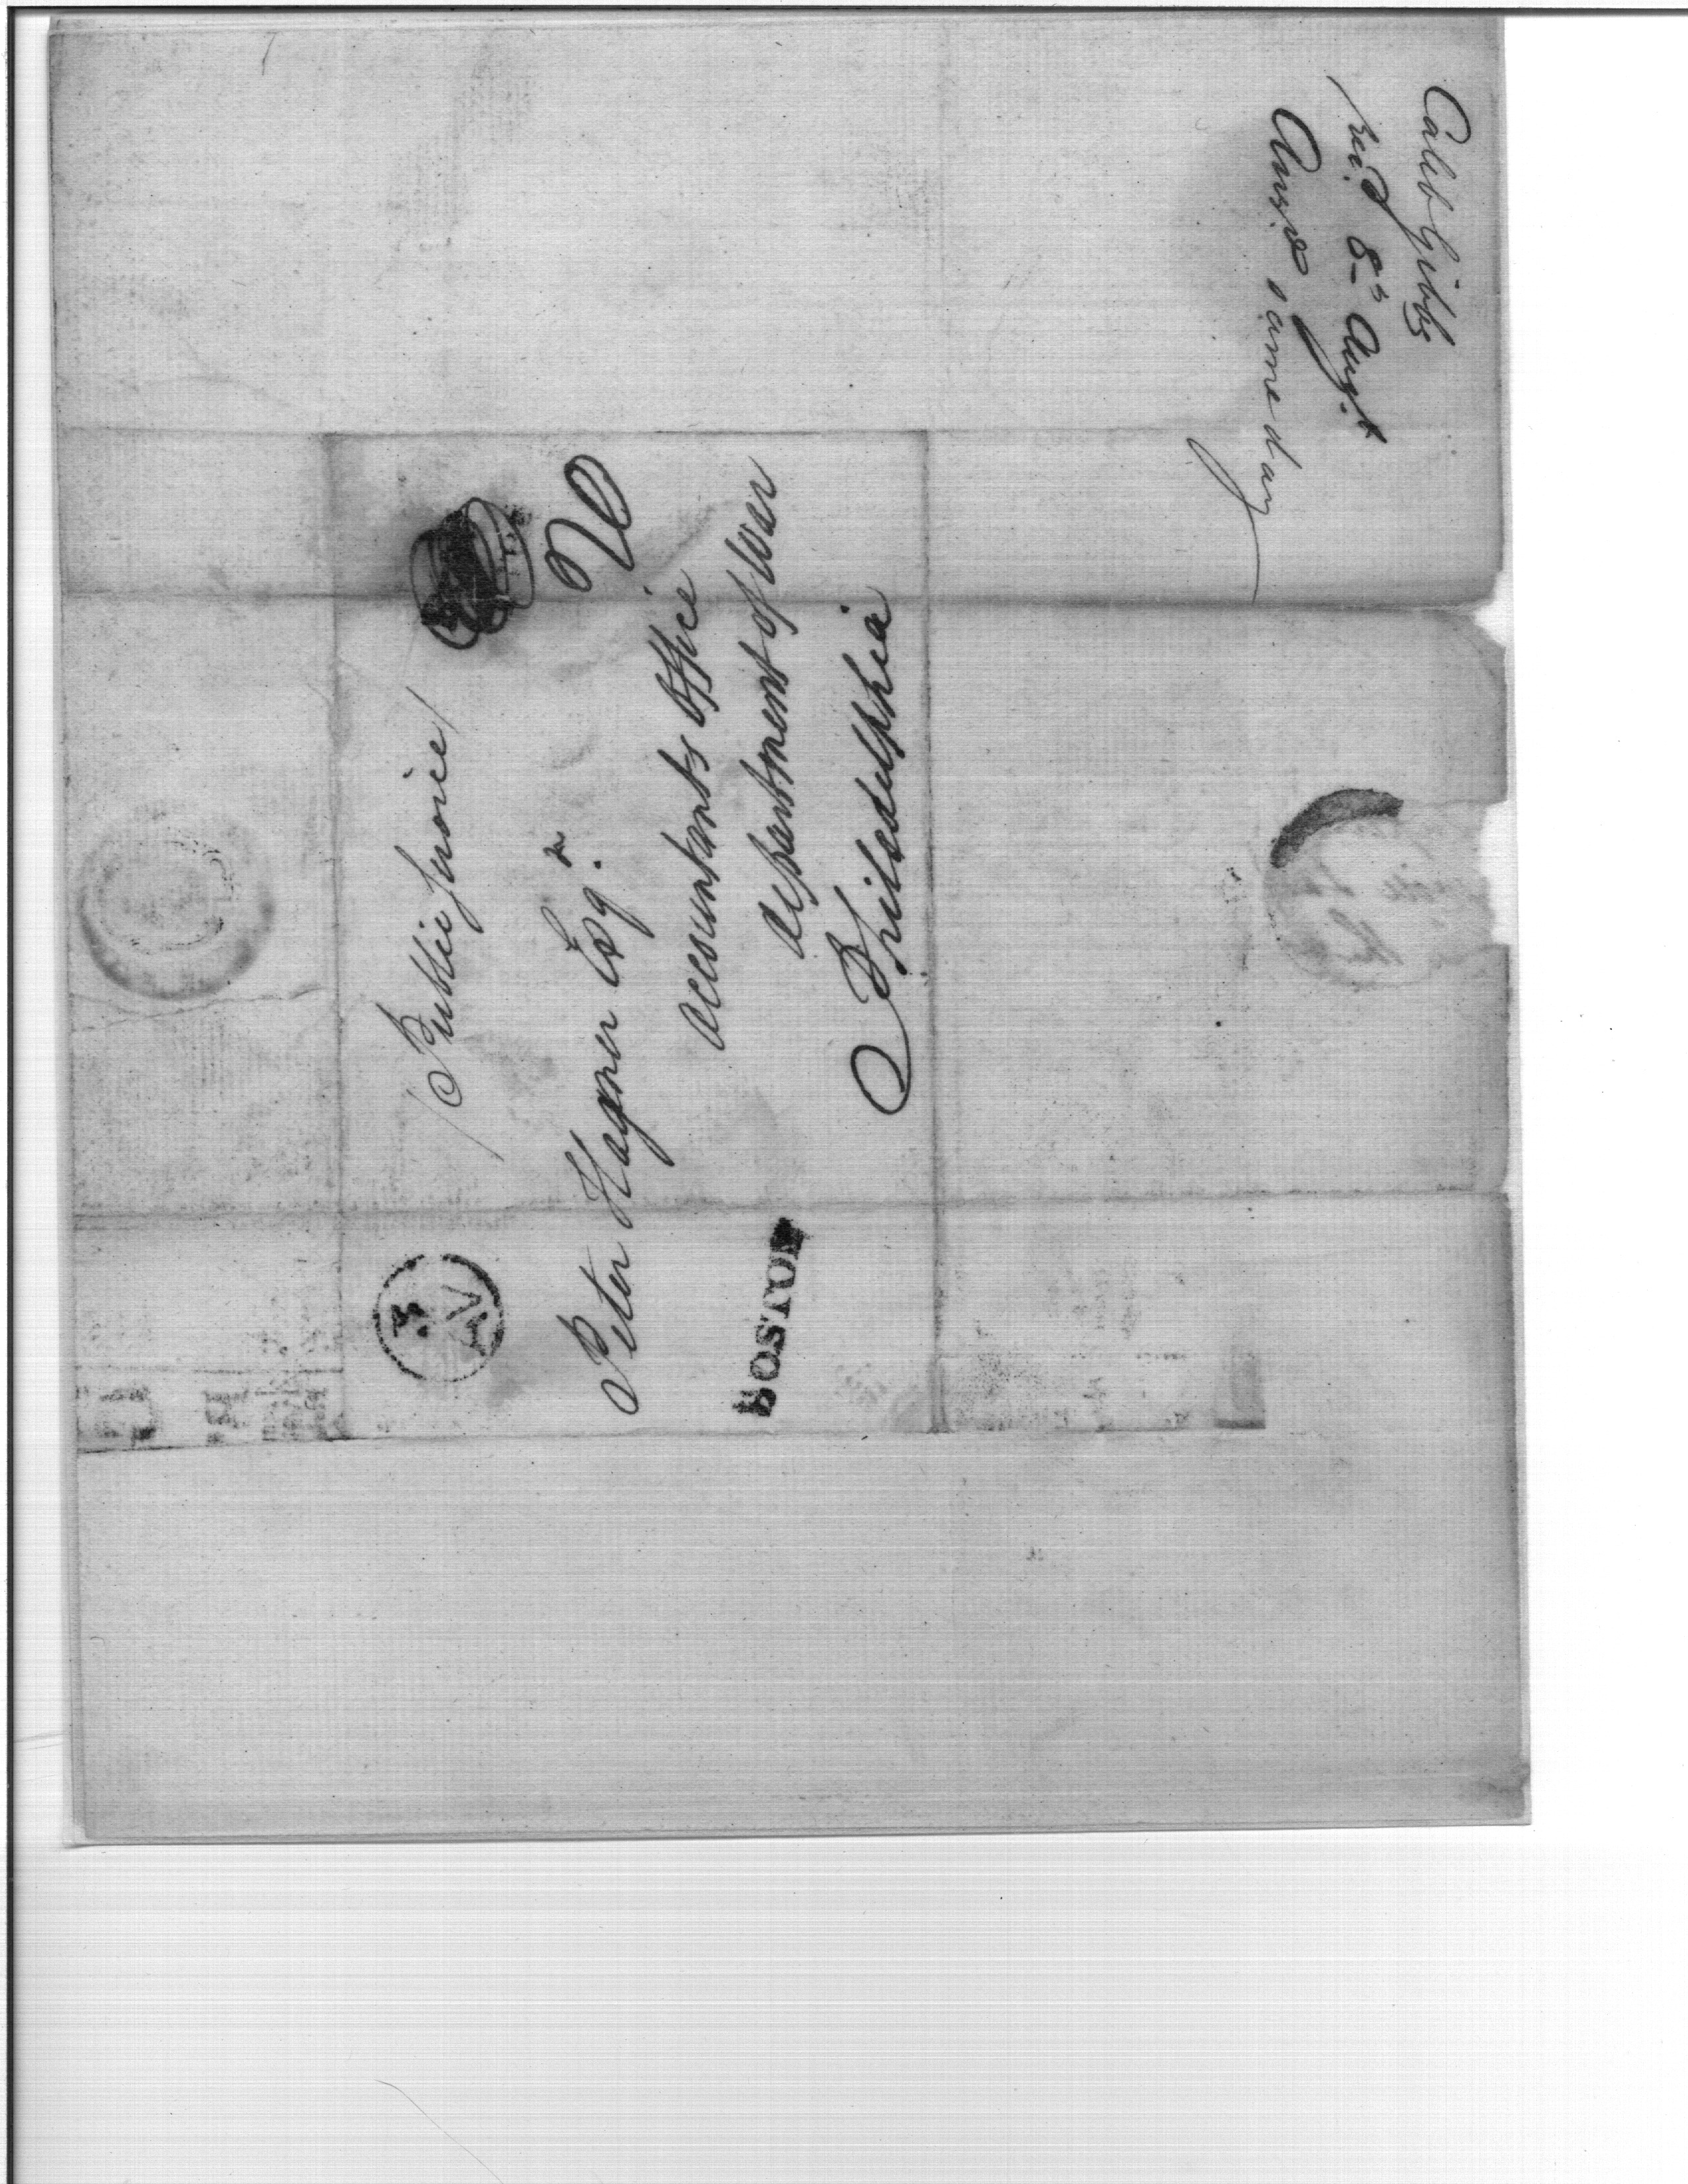 Public Service
Peter Hagner Esqr.
Accountants Office
department of War
Philadelphia
BOSTON
3
AV
20
Caleb Gibbs
rec.d 8th Augt.
Answd same day